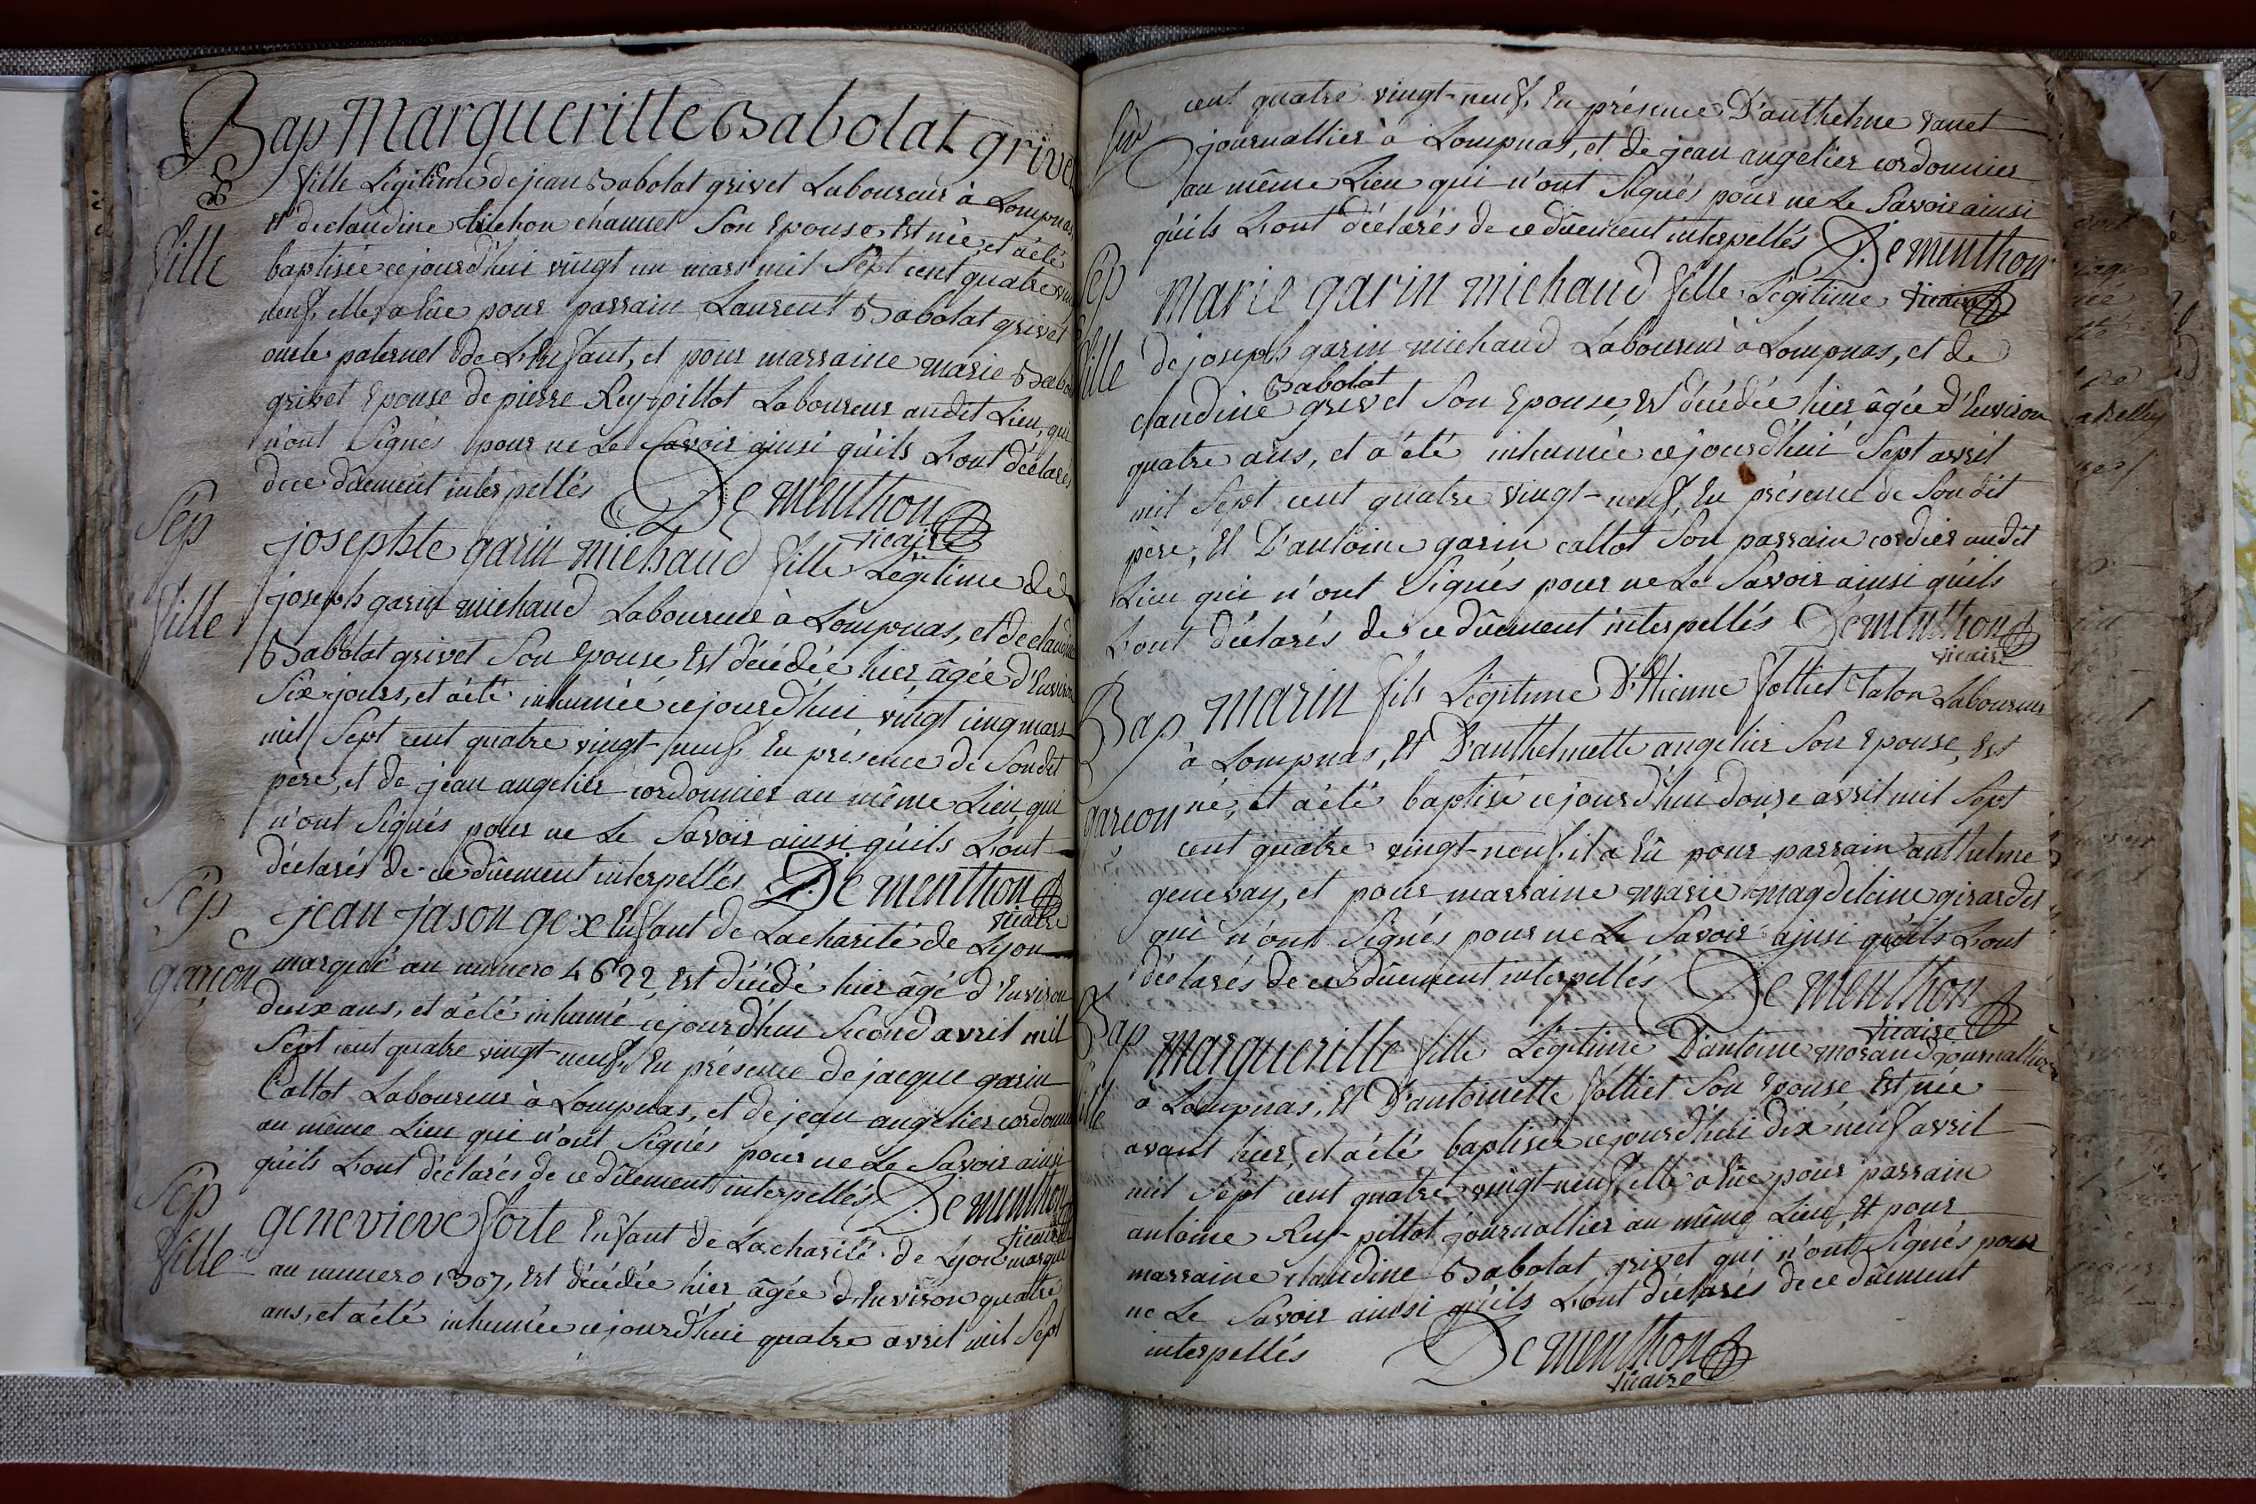 Bap Margueritte Babolat grivet
fille Légitime de jean Babolat grivet Laboureur à Lompnas
et de claudine Michon chanuet son Epouse est née et a été
fille
baptisée cejourd'hui vingt un mars mil sept cent quatre vingt
neuf, elle a Eûe pour parrain Laurent Babolat grivet
oncle paternel de L'Enfant, et pour marraine marie Babolat
grivet Epouse de pierre Rey-pillot Laboureur audit Lieu, qui
n'ont signés pour ne Le savoir ainsi qu'ils L'ont déclarés
de ce dûement interpellés De menthon
vicaire
Sép
josephte garin michaud fille Légitime de
fille
joseph garin michaud Laboureur à Lompnas, et de claudine
Babolat grivet son Epouse Est décédée hier âgée d'Environ
six jours, et a été inhumée cejourd'hui vingt cinq mars
mil sept cent quatre vingt-neuf, En présence de sondit
père, et de jean angelier cordonnier au même Lieu, qui
n'ont signés pour ne Le savoir ainsi qu'ils L'ont
déclarés de ce dûement interpellés De menthon
vicaire
Sép
garçon
jean jason gex Enfant de La charité de Lyon
marqué au numero 4622 Est décédé hier âgé d'Environ
deux ans, et a été inhumé cejourd'hui second avril mil
sept cent quatre vingt-neuf, En présence de jacque garin
Caltot Laboureur à Lompnas, et de jean angelier cordonnier
au même Lieu qui n'ont signés pour ne Le savoir ainsi
qu'ils L'ont déclarés de ce dûement interpellés De menthon
vicaire
Sép
fille
genevieve forte Enfant de La charité de Lyon marquée
au numero 1307, Est décédée hier âgée d'Environ quatre
ans, et a été inhumée cejourd'hui quatre avril mil sept
cent quatre vingt-neuf, En présence D'anthelme
journallier à Lompnas, et de jean angelier cordonnier
au même Lieu qui n'ont signés pour ne Le savoir ainsi
qu'ils L'ont déclarés de ce dûement interpellés De menthon
vicaire
Sép
fille
marie garin michaud fille Légitime
de joseph garin michaud Laboureur à Lompnas, et de
Babolat
claudine grivet son Epouse, Est décédée hier âgée d'Environ
quatre ans, et a été inhumée cejourd'hui sept avril
mil sept cent quatre vingt-neuf, En présence de sondit
père, Et D'antoine garin caltot son parrain cordier audit
Lieu qui n'ont signés pour ne Le savoir ainsi qu'ils
L'ont déclarés de ce dûement interpellés De menthon
vicaire
Bap
garçon
marin fils Légitime D'Etienne folliet talon Laboureur
à Lompnas, Et D'anthelmette angelier son Epouse, Est
né, et a été baptisé cejourd'hui douze avril mil sept
cent quatre vingt-neuf, il a Eû pour parrain anthelme
genevay, et pour marraine marie magdelaine girardet
qui n'ont signés pour ne Le savoir ainsi qu'ils L'ont
déclarés de ce dûement interpellés De menthon
vicaire
Bap
fille
margueritte fille Légitime D'antoine morand journallier
à Lompnas, Et D'antoinette folliet son Epouse Est née
avant hier, et a été baptisée cejourd'hui dix neuf avril
mil sept cent quatre vingt-neuf, elle a Eûe pour parrain
antoine Rey-pillot journallier au même Lieu, Et pour
marraine claudine Babolat grivet qui n'ont signés pour
ne Le savoir ainsi qu'ils L'ont déclarés de ce dûement
interpellés De menthon
vicaire